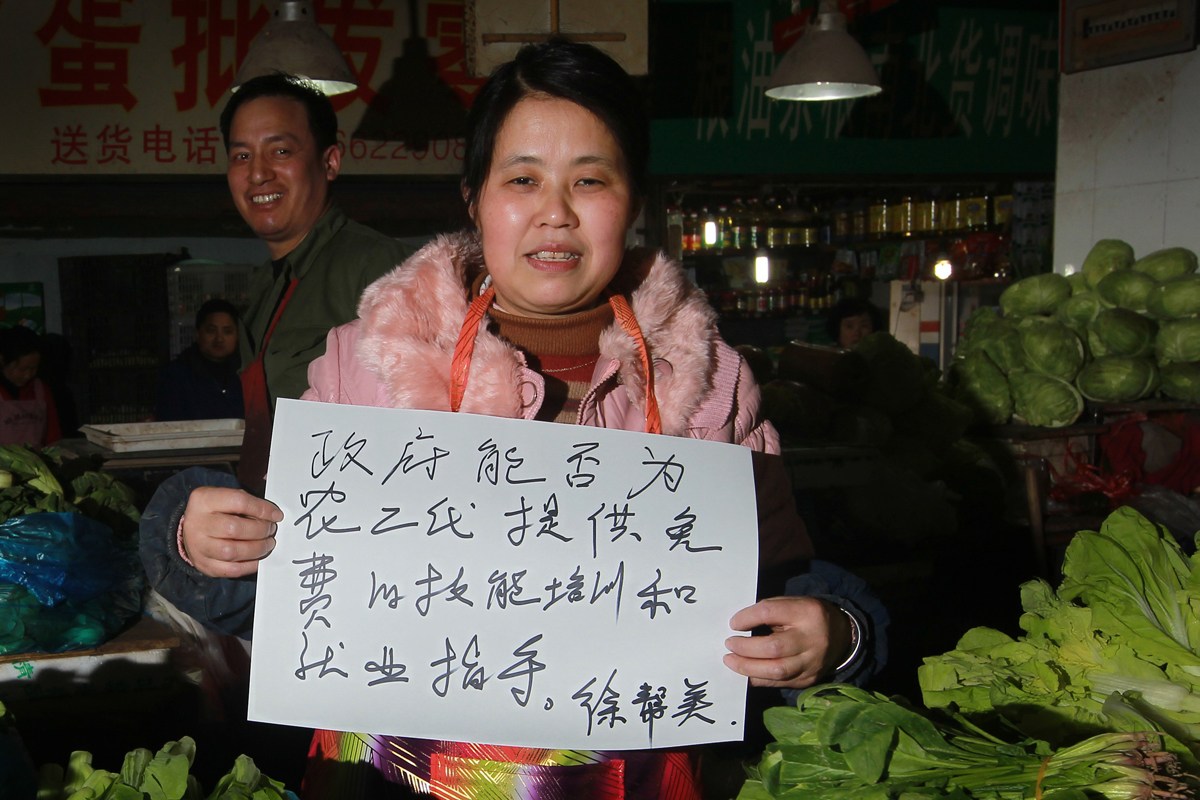 蛋批发零
送货电话 6622908
粮油 北货调味
政府能否为
农二代提供免
费的技能培训和
就业指手。徐帮美.